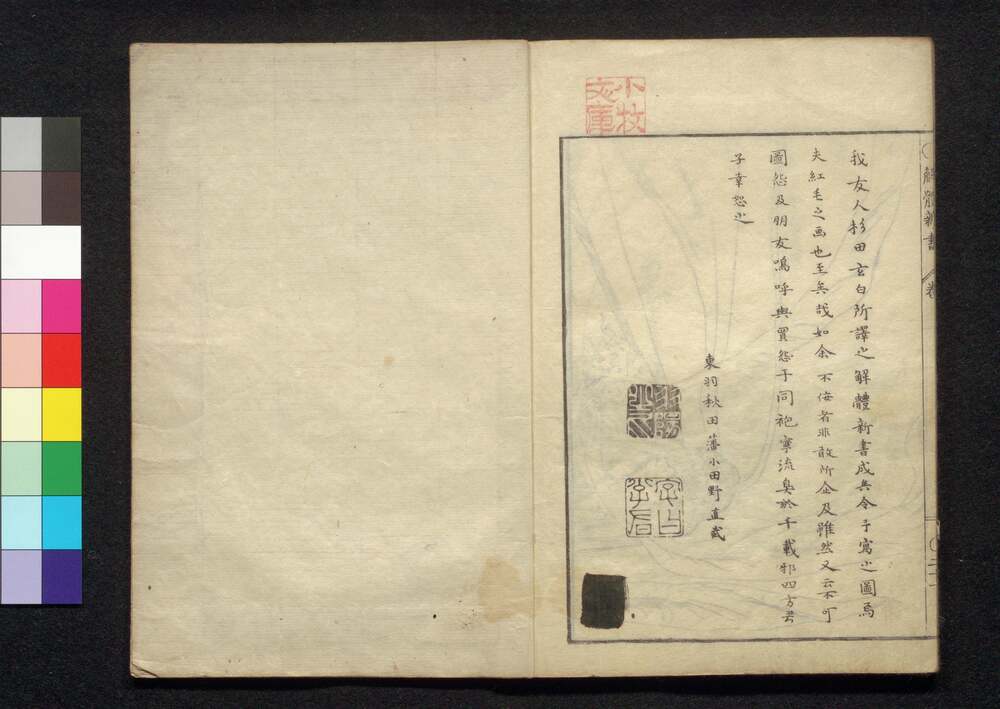 解體新書 卷
我友人杉田玄白所譯之解體新書成矣令予寫之圖焉
夫紅毛之画也至矣哉如余不佞者非敢所企及雖然又云不可
圖怨及朋友嗚呼與買怨于同袍寧流臭於千載邪四方君
子幸恕之
東羽秋田藩小田野直武
小牧
文庫